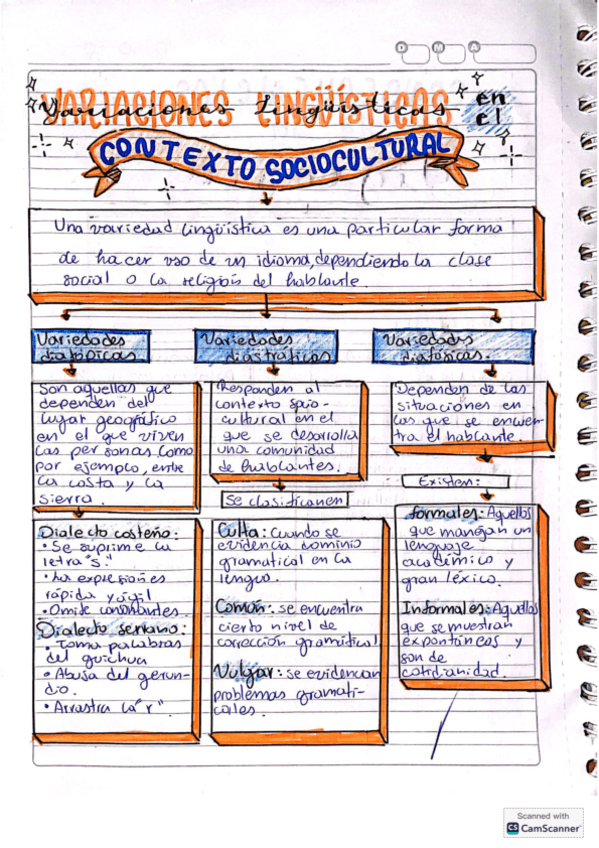 D M A
Variaciones Lingüísticas en el
CONTEXTO SOCIOCULTURAL
Una variedad lingüística es una particular forma
de hacer uso de un idioma, dependiendo la clase
social o la religión del hablante.
Variedades
diatópicas
Son aquellas que
dependen del
lugar geográfico
en el que viven
las personas como
por ejemplo, entre
la costa y la
sierra.
Dialecto costeño:
• Se suprime la
letra "s".
• La expresión es
rápida y ágil
• Omite consonantes.
Dialecto serrano:
• Toma palabras
del quichua
• Abusa del gerun-
dio.
• Arrastra la "r".
Variedades
diastráticas
Responden al
contexto socio-
cultural en el
que se desarrolla
una comunidad
de hablantes.
Se clasifican en
Culta: Cuando se
evidencia dominio
gramatical en la
lengua.
Común: se encuentra
cierto nivel de
corrección gramatical
Vulgar: se evidencian
problemas gramati-
cales.
Variedades
diafásicas.
Dependen de las
situaciones en
las que se encuen-
tra el hablante.
Existen:
formales: Aquellos
que manejan un
lenguaje
académico y
gran léxico.
Informales: Aquellos
que se muestran
expontáneos y
son de
cotidianidad.
Scanned with
CS CamScanner